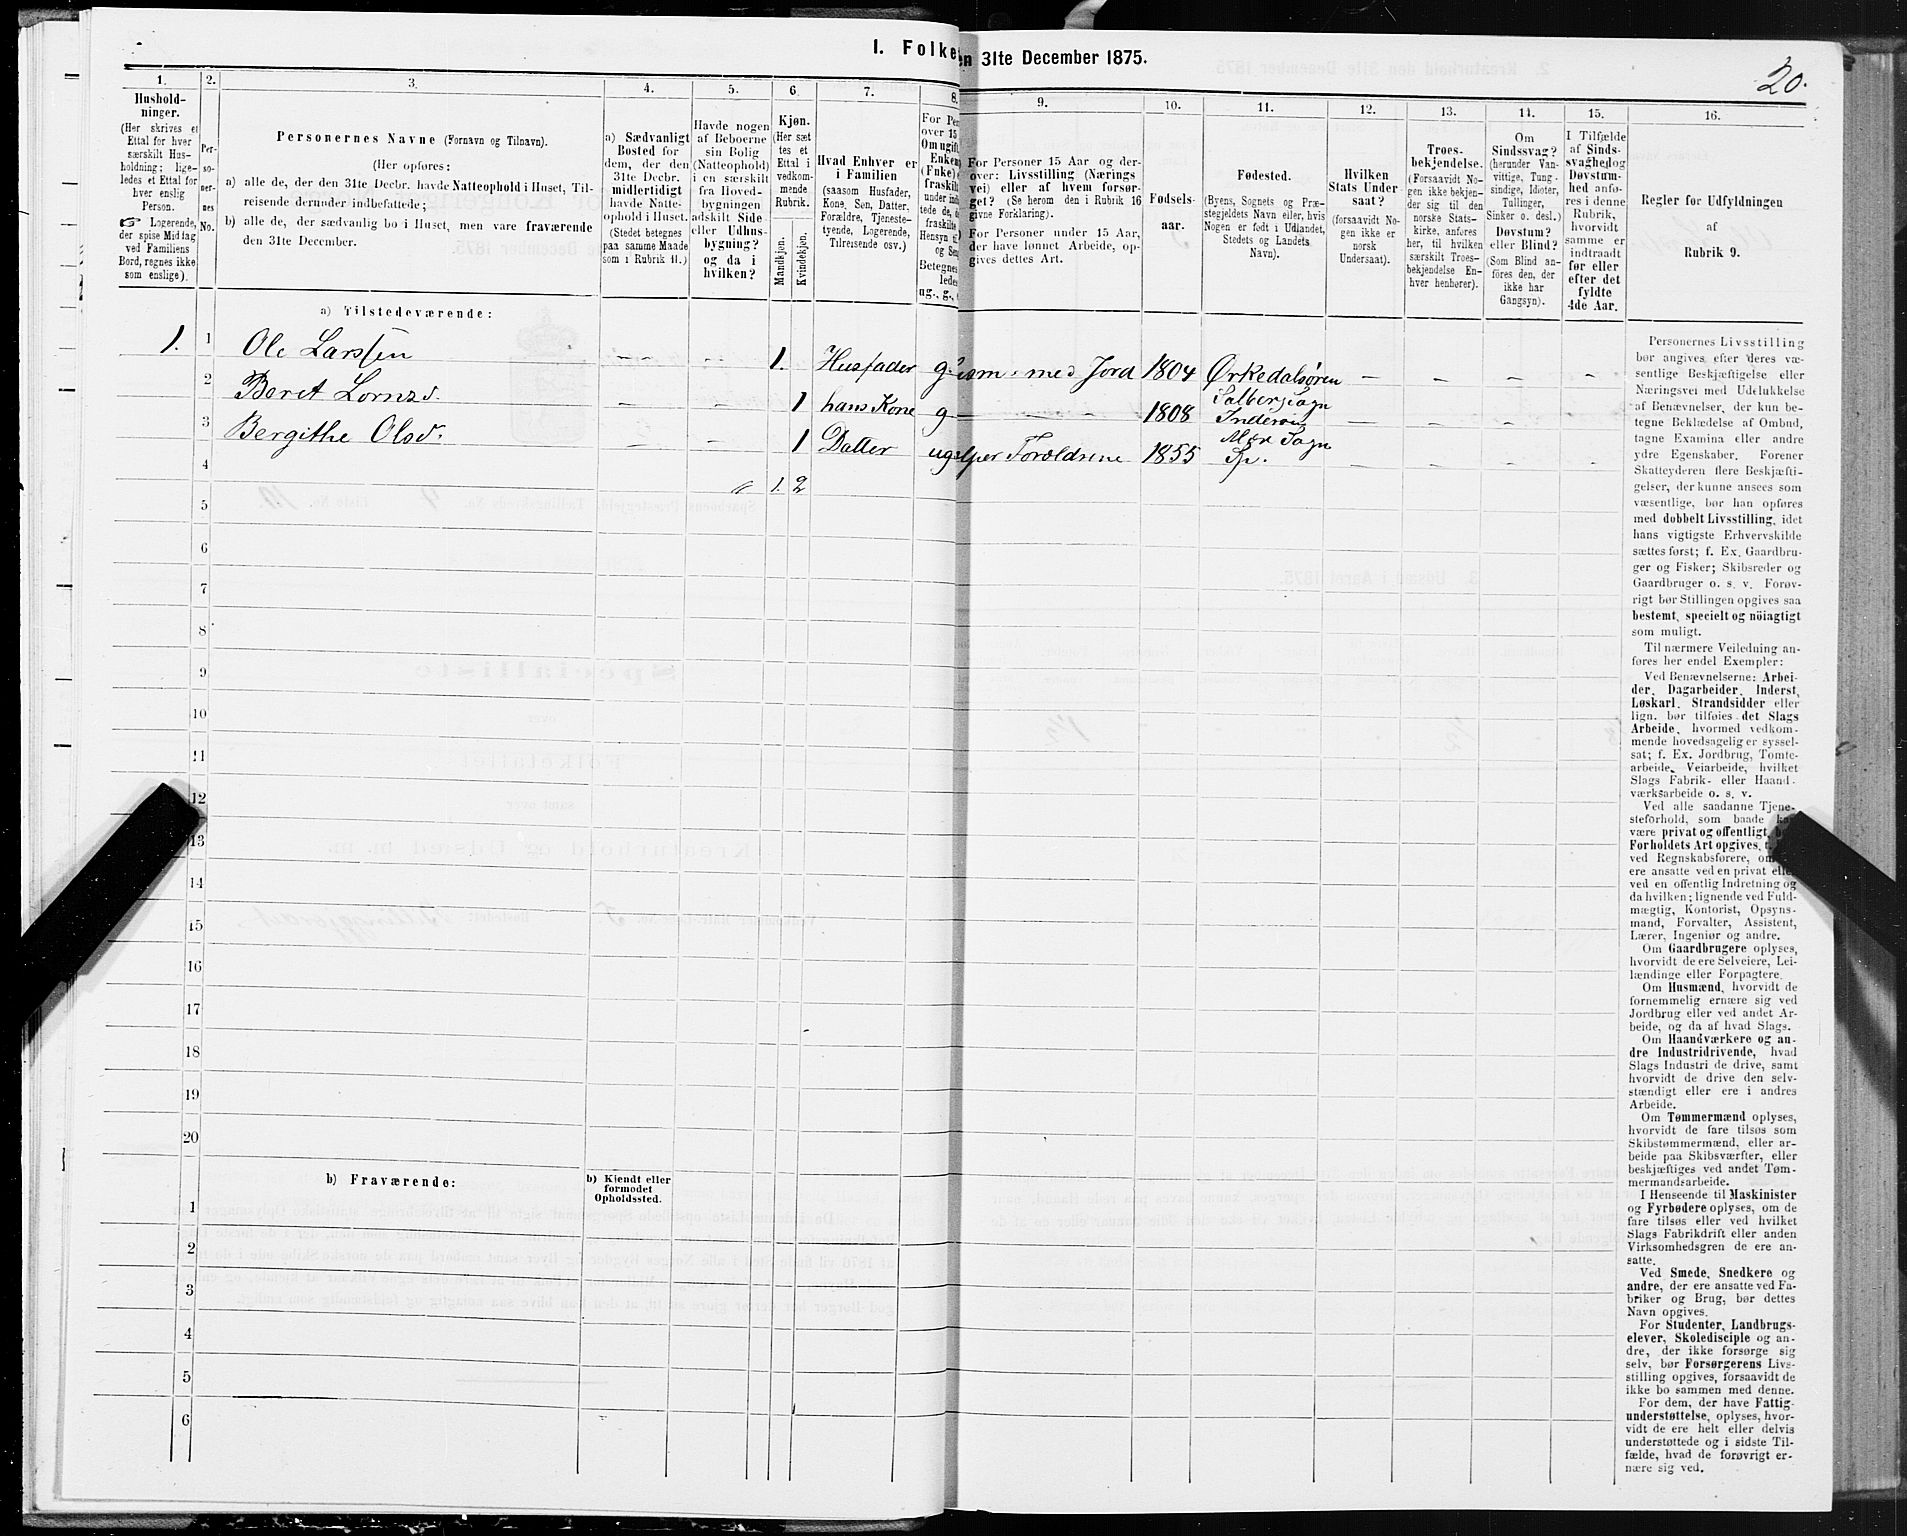 I. Folke
en 31te December 1875.
20.
1.
2.
3.
4.
5.
6.
7.
8.
9.
10.
11.
12.
13.
14.
15.
16.
Hushold-
ninger.
(Her skrives et
Ettal for hver
særskilt Hus-
holdning; lige-
ledes et Ettal for
hver enslig
Person.
☞ Logerende,
der spise Middag
ved Familiens
Bord, regnes ikke
som enslige).
Per-
so-
ner-
nes
No.
Personernes Navne (Fornavn og Tilnavn).
(Her opføres:
a) alle de, der den 31te Decbr. havde Natteophold i Huset, Til-
reisende derunder indbefattede;
b) alle de, der sædvanlig bo i Huset, men vare fraværende
den 31te December.
a) Sædvanligt
Bosted for
dem, der den
31te Decbr.
midlertidigt
havde Natte-
ophold i Huset.
(Stedet betegnes
paa samme Maade
som i Rubrik 11.)
Havde nogen
af Beboerne
sin Bolig
(Natteophold)
i en særskilt
fra Hoved-
bygningen
adskilt Side-
eller Udhus-
bygning?
og da i
hvilken?
Kjøn.
(Her sæt-
tes et
Ettal i
vedkom-
mende
Rubrik.
Mandkjøn.
Kvindekjøn.
Hvad Enhver er
i Familien
(saasom Husfader,
Kone, Søn, Datter,
Forældre, Tjeneste-
tyende, Logerende,
Tilreisende osv.)
For Pe
over 15
Om ugift
Enkem
(Enke)
fraskilt
under ind
tede de, d
fraskilte
Hensyn ti
og Sen
Betegnes
ledes
ug., g.,
For Personer 15 Aar og der-
over: Livsstilling (Nærings
vei) eller af hvem forsør-
get? (Se herom den i Rubrik 16
givne Forklaring).
For Personer under 15 Aar,
der have lønnet Arbeide, op-
gives dettes Art.
Fødsels-
aar.
Fødested.
(Byens, Sognets og Præ-
stegjeldets Navn eller, hvis
Nogen er født i Udlandet,
Stedets og Landets
Navn).
Hvilken
Stats Under
saat?
(forsaavidt No-
gen ikke er
norsk
Undersaat).
Troes-
bekjendelse.
(Forsaavidt No-
gen ikke bekjen-
der sig til den
norske Stats-
kirke, anføres
her, til hvilken
særskilt Troes-
bekjendelse En-
hver henhører).
Om
Sindssvag?
(herunder Van-
vittige, Tung-
sindige, Idioter,
Tullinger,
Sinker o. desl.)
Døvstum?
eller Blind?
(Som Blind an-
føres den, der
ikke har
Gangsyn).
I Tilfælde
af Sinds-
svaghed og
Døvstum-
hed anfø-
res i denne
Rubrik,
hvorvidt
samme er
indtraadt
før eller
efter det
fyldte
4de Aar.
Regler før Udfyldningen
af
Rubrik 9.
a) Tilstedeværende:
1. 1 Ole Larssen — — — — 1. Husfader g Husm. med Jord 1804 Ørkedalsøren — — — —
2 Beret Lornzd. — — 1 hans Kone g — — 1808 Salberg Sogn Inderøen — — — —
3 Bergithe Olsd. — — 1 Datter ug Forældrene 1855 Sogn Sp. — — — —
4 1. 2
5
6
7
8
9
10
11
12
13
14
15
16
17
18
19
20
b) Fraværende:
b) Kjendt eller
formodet
Opholdssted.
1
2
3
4
5
6
Personernes Livsstilling
bør angives efter deres væ-
sentlige Beskjæftigelse eller
Næringsvei med Udelukkelse
af Benævnelser, der kun be-
tegne Beklædelse af Ombud,
tagne Examina eller andre
ydre Egenskaber. Forener
Skatteyderen flere Beskjæfti-
gelser, der kunne ansees som
væsentlige, bør han opføres
med dobbelt Livsstilling, idet
hans vigtigste Erhvervskilde
sættes først; f. Ex. Gaardbru-
ger og Fisker; Skibsreder og
Gaardbruger o. s. v. Forøv-
rigt bør Stillingen opgives saa
bestemt, specielt og nöiagtigt
som muligt.
Til nærmere Veiledning an-
føres her endel Exempler:
Ved Benævnelserne: Arbei-
der, Dagarbeider, Inderst,
Løskarl, Strandsidder eller
lign. bør tilføies det Slags
Arbeide, hvormed vedkom-
mende hovedsagelig er syssel-
sat; f. Ex. Jordbrug, Tomte-
arbeide, Veiarbeide, hvilket
Slags Fabrik- eller Haand-
værksarbeide o. s. v.
Ved alle saadanne Tjene-
steforhold, som baade kan
være privat og offentligt, bør
Forholdets Art opgives,
ved Regnskabsførere, om
ere ansatte ved en privat eller
ved en offentlig Indretning og
da hvilken; lignende ved Fuld-
mægtig, Kontorist, Opsyns-
mand, Forvalter, Assistent,
Lærer, Ingeniør og andre.
Om Gaardbrugere oplyses,
hvorvidt de ere Selveiere, Lei-
lændinge eller Forpagtere.
Om Husmænd, hvorvidt de
fornemmelig ernære sig ved
Jordbrug eller ved andet Ar-
beide, og da af hvad Slags.
Om Haandværkere og an-
dre Industridrivende, hvad
Slags Industri de drive, samt
hvorvidt de drive den selv-
stændigt eller ere i andres
Arbeide.
Om Tømmermænd oplyses,
hvorvidt de fare tilsøs som
Skibstømmermænd, eller ar-
beide paa Skibsværfter, eller
beskjæftiges ved andet Tøm-
mermandsarbeide.
I Henseende til Maskinister
og Fyrbødere oplyses, om de
fare tilsøs eller ved hvilket
Slags Fabrikdrift eller anden
Virksomhedsgren de ere an-
satte.
Ved Smede, Snedkere og
andre, der ere ansatte ved Fa-
briker og Brug, bør dettes
Navn opgives.
For Studenter, Landbrugs-
elever, Skoledisciple og an-
dre, der ikke forsørge sig
selv, bør Forsørgerens Livs-
stilling opgives, forsaavidt de
ikke bo sammen med denne.
For dem, der have Fattig-
understøttelse, oplyses, hvor-
vidt de ere helt eller delvis
understøttede og i sidste Til-
fælde, hvad de forøvrigt er-
nære sig ved.